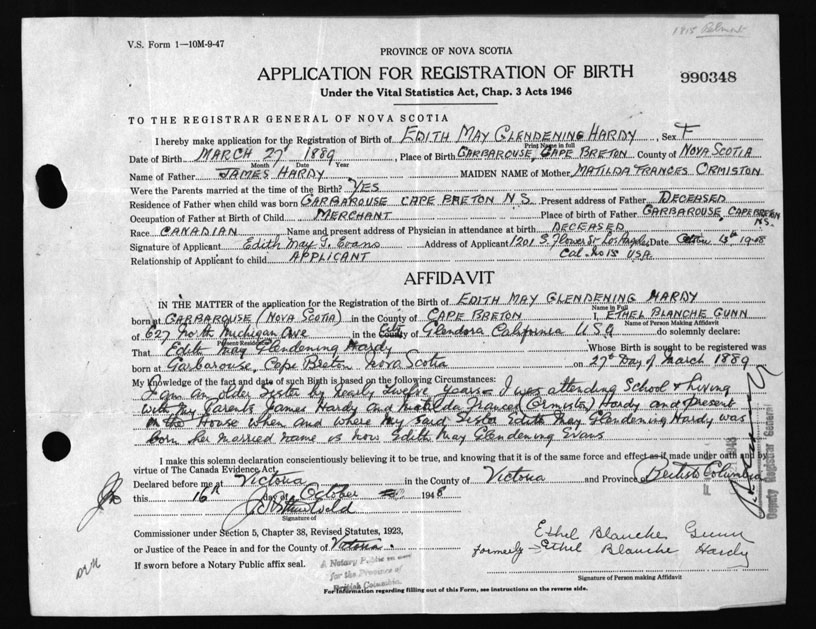 1815 Belmont
V.S. Form 1—10M-9-47
PROVINCE OF NOVA SCOTIA
APPLICATION FOR REGISTRATION OF BIRTH
990348
Under the Vital Statistics Act, Chap. 3 Acts 1946
TO THE REGISTRAR GENERAL OF NOVA SCOTIA
I hereby make application for the Registration of Birth of EDITH MAY GLENDENING HARDY, Sex F
Print Name in full
Date of Birth MARCH 27th 1889, Place of Birth GARBAROUSE, CAPE BRETON County of NOVA SCOTIA
Month Day Year
Name of Father JAMES HARDY MAIDEN NAME of Mother MATILDA FRANCES ORMISTON
Were the Parents married at the time of the Birth? YES
Residence of Father when child was born GARBAROUSE CAPE BRETON N.S. Present address of Father DECEASED
Occupation of Father at Birth of Child MERCHANT Place of birth of Father GARBAROUSE, CAPE BRETON N.S.
Race CANADIAN Name and present address of Physician in attendance at birth DECEASED
Signature of Applicant Edith May G. Evans Address of Applicant 1201 S. Flower St Los Angeles Date
Relationship of Applicant to child APPLICANT Cal. No 15 USA.
AFFIDAVIT
IN THE MATTER of the application for the Registration of the Birth of EDITH MAY GLENDENING HARDY
Name in Full
born at GARBAROUSE (NOVA SCOTIA) in the County of CAPE BRETON I, ETHEL BLANCHE GUNN
Name of Person Making Affidavit
of 627 North Michigan Ave in the City of Glendora California USA do solemnly declare:
Present Residence
That Edith May Glendening Hardy Whose Birth is sought to be registered was
born at Garbarouse, Cape Breton Nova Scotia on 27th Day of March 1889
My knowledge of the fact and date of such Birth is based on the following Circumstances:
I am an older Sister by nearly twelve years - I was attending School & living
with my Parents James Hardy and Matilda Frances (Ormiston) Hardy and present
in the House when and where my said Sister Edith May Glendening Hardy was
born her married name is now Edith May Glendening Evans
I make this solemn declaration conscientiously believing it to be true, and knowing that it is of the same force and effect as if made under oath and by
virtue of The Canada Evidence Act.
Declared before me at Victoria in the County of Victoria and Province of British Columbia
this 16th day of October 1948
Signature of
Commissioner under Section 5, Chapter 38, Revised Statutes, 1923,
or Justice of the Peace in and for the County of Victoria
If sworn before a Notary Public affix seal.
A Notary Public in and
for the Province of
British Columbia.
Ethel Blanche Gunn
formerly Ethel Blanche Hardy
Signature of Person making Affidavit
For information regarding filling out of this Form, see instructions on the reverse side.
Deputy Registrar General